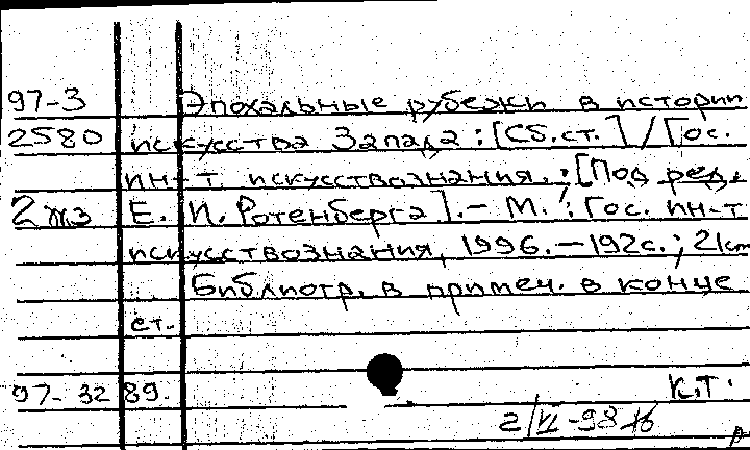 97-3 Эпохальные рубежи в истории
2580 искусства Запада : [Сб. ст.] / Гос.
ин-т искусствознания. ; [Под ред.
2жз Е. И. Ротенберга]. - М. : Гос. ин-т
искусствознания, 1996. - 192с. ; 21см
Библиогр. в примеч. в конце
ст.
97-32 89. К.Т.
2/VI-98